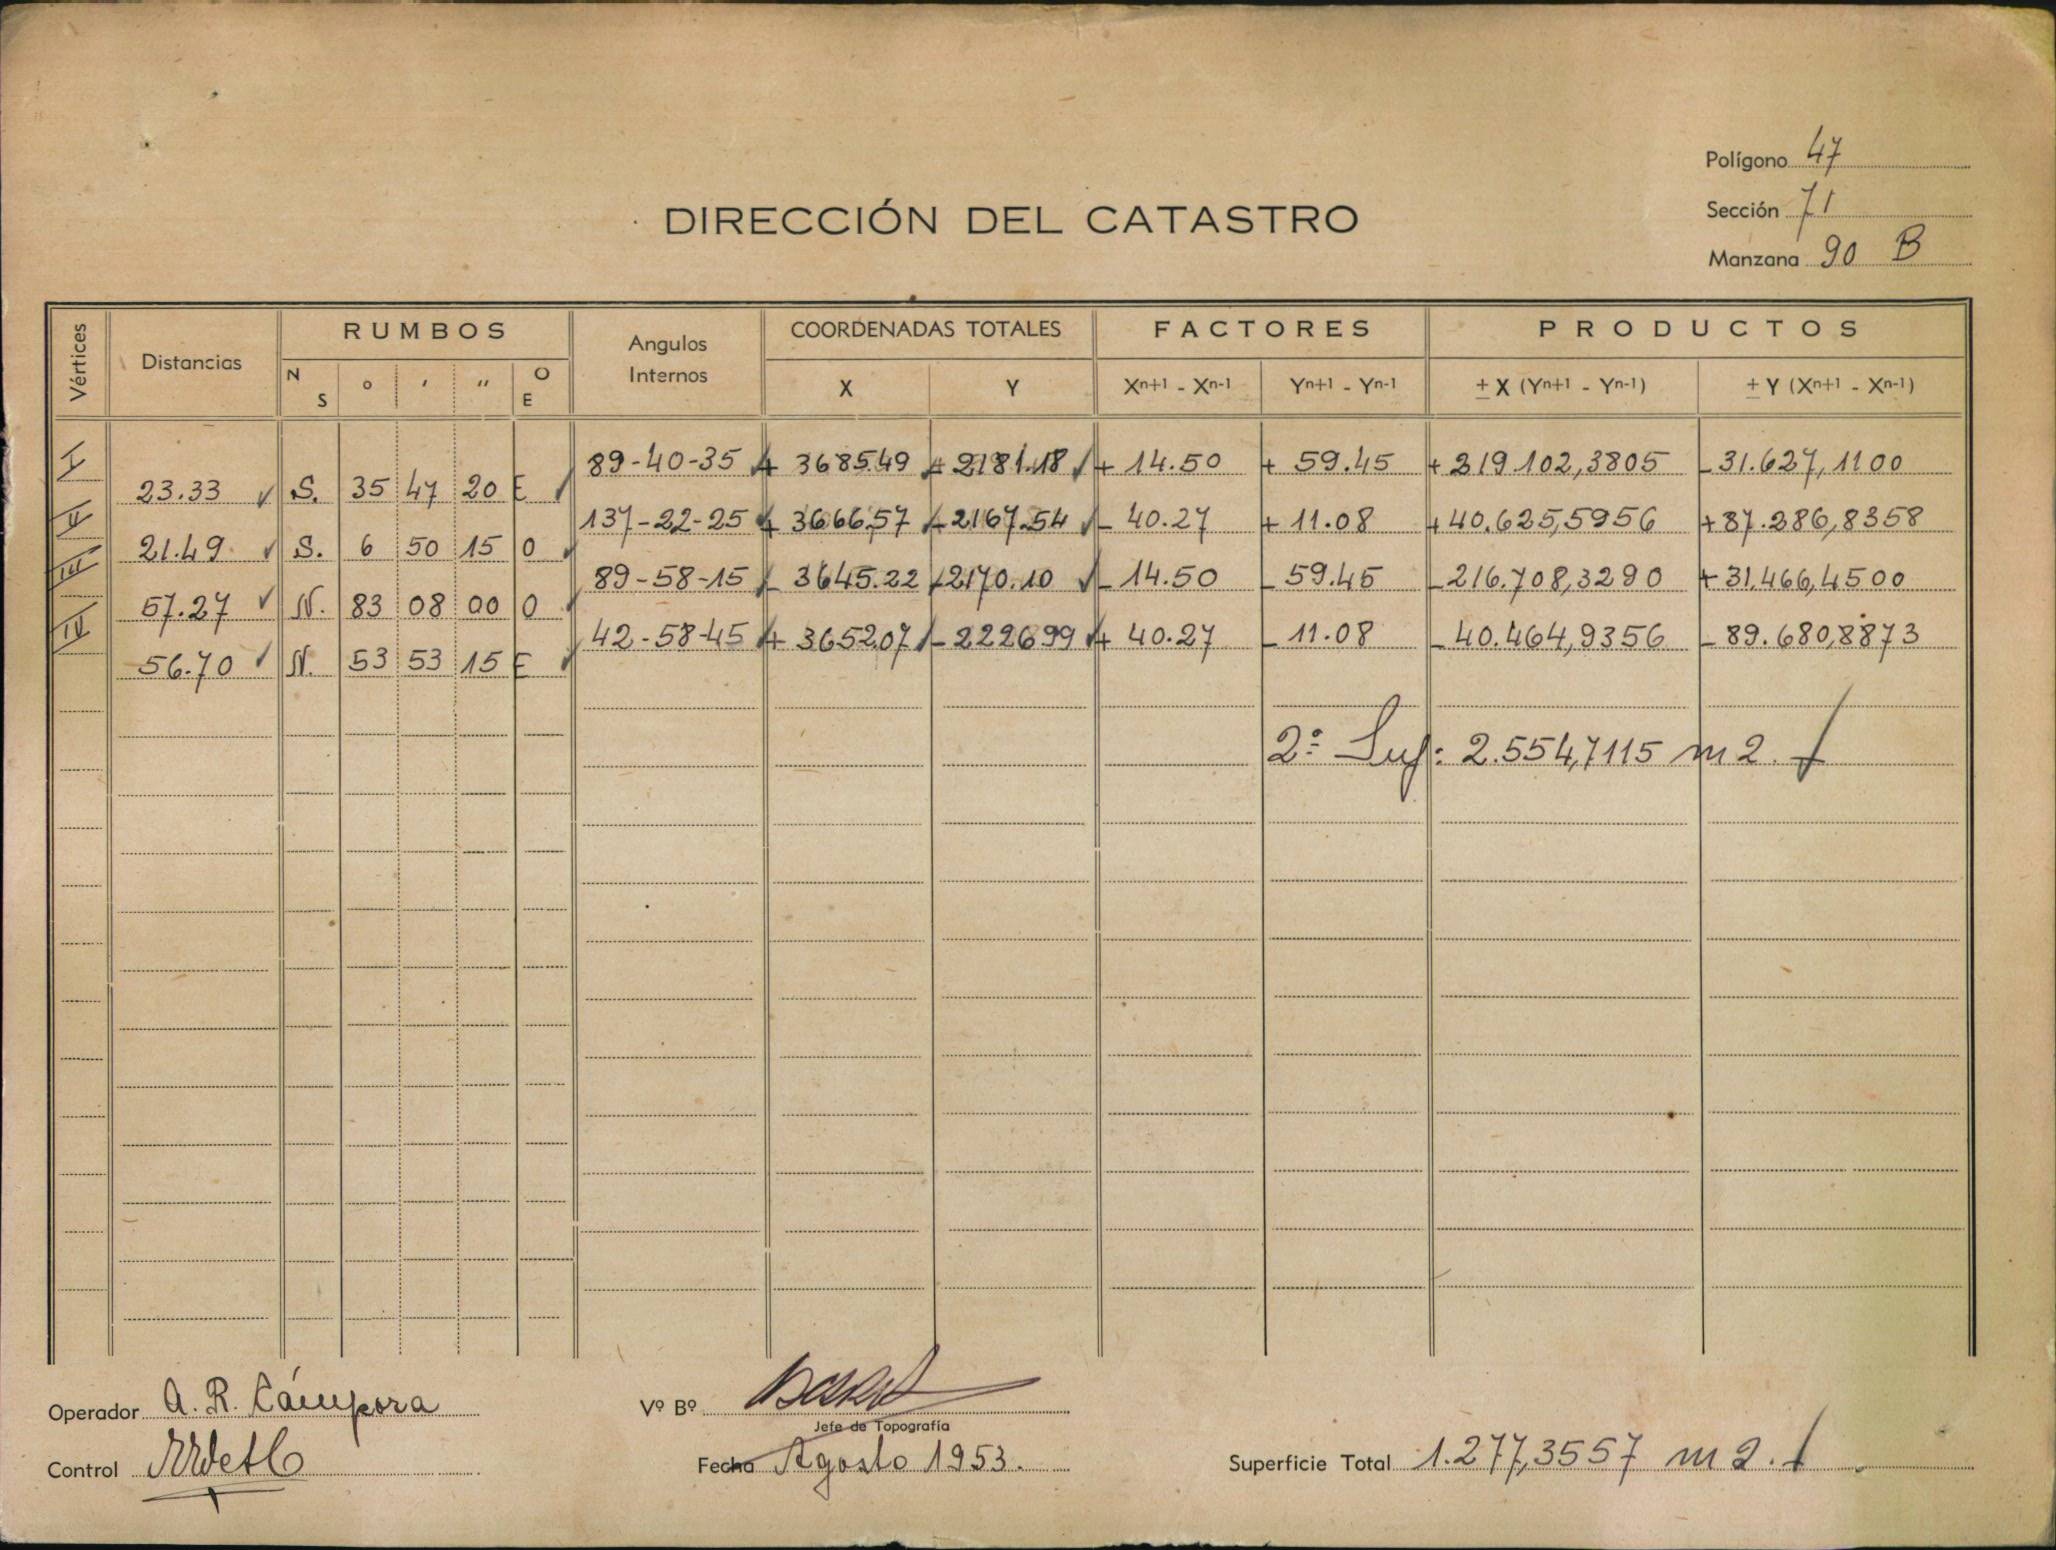 Polígono 47
DIRECCIÓN DEL CATASTRO
Sección 71
Manzana 90 B
Vértices Distancias RUMBOS Angulos Internos COORDENADAS TOTALES FACTORES PRODUCTOS
N S ° ′ ″ O E X Y Xⁿ⁺¹ - Xⁿ⁻¹ Yⁿ⁺¹ - Yⁿ⁻¹ ± X (Yⁿ⁺¹ - Yⁿ⁻¹) ± Y (Xⁿ⁺¹ - Xⁿ⁻¹)
I 89-40-35 + 3685.49 - 2181.18 + 14.50 + 59.45 + 219.102,3805 - 31.627,1100
23.33 S. 35 47 20 E
II 137-22-25 + 3666,57 - 2167.54 - 40.27 + 11.08 + 40.625,5956 + 87.286,8358
21.49 S. 6 50 15 O
III 89-58-15 - 3645.22 - 2170.10 - 14.50 - 59.45 - 216.708,3290 + 31.466,4500
57.27 N. 83 08 00 O
IV 42-58-45 + 365207 - 222699 + 40.27 - 11.08 - 40.464,9356 - 89.680,8873
56.70 N. 53 53 15 E
2ª Sup: 2.554,7115 m2.
Operador A. R. Cámpora
Vº Bº
Jefe de Topografía
Control
Fecha Agosto 1953.
Superficie Total 1.277,3557 m2.